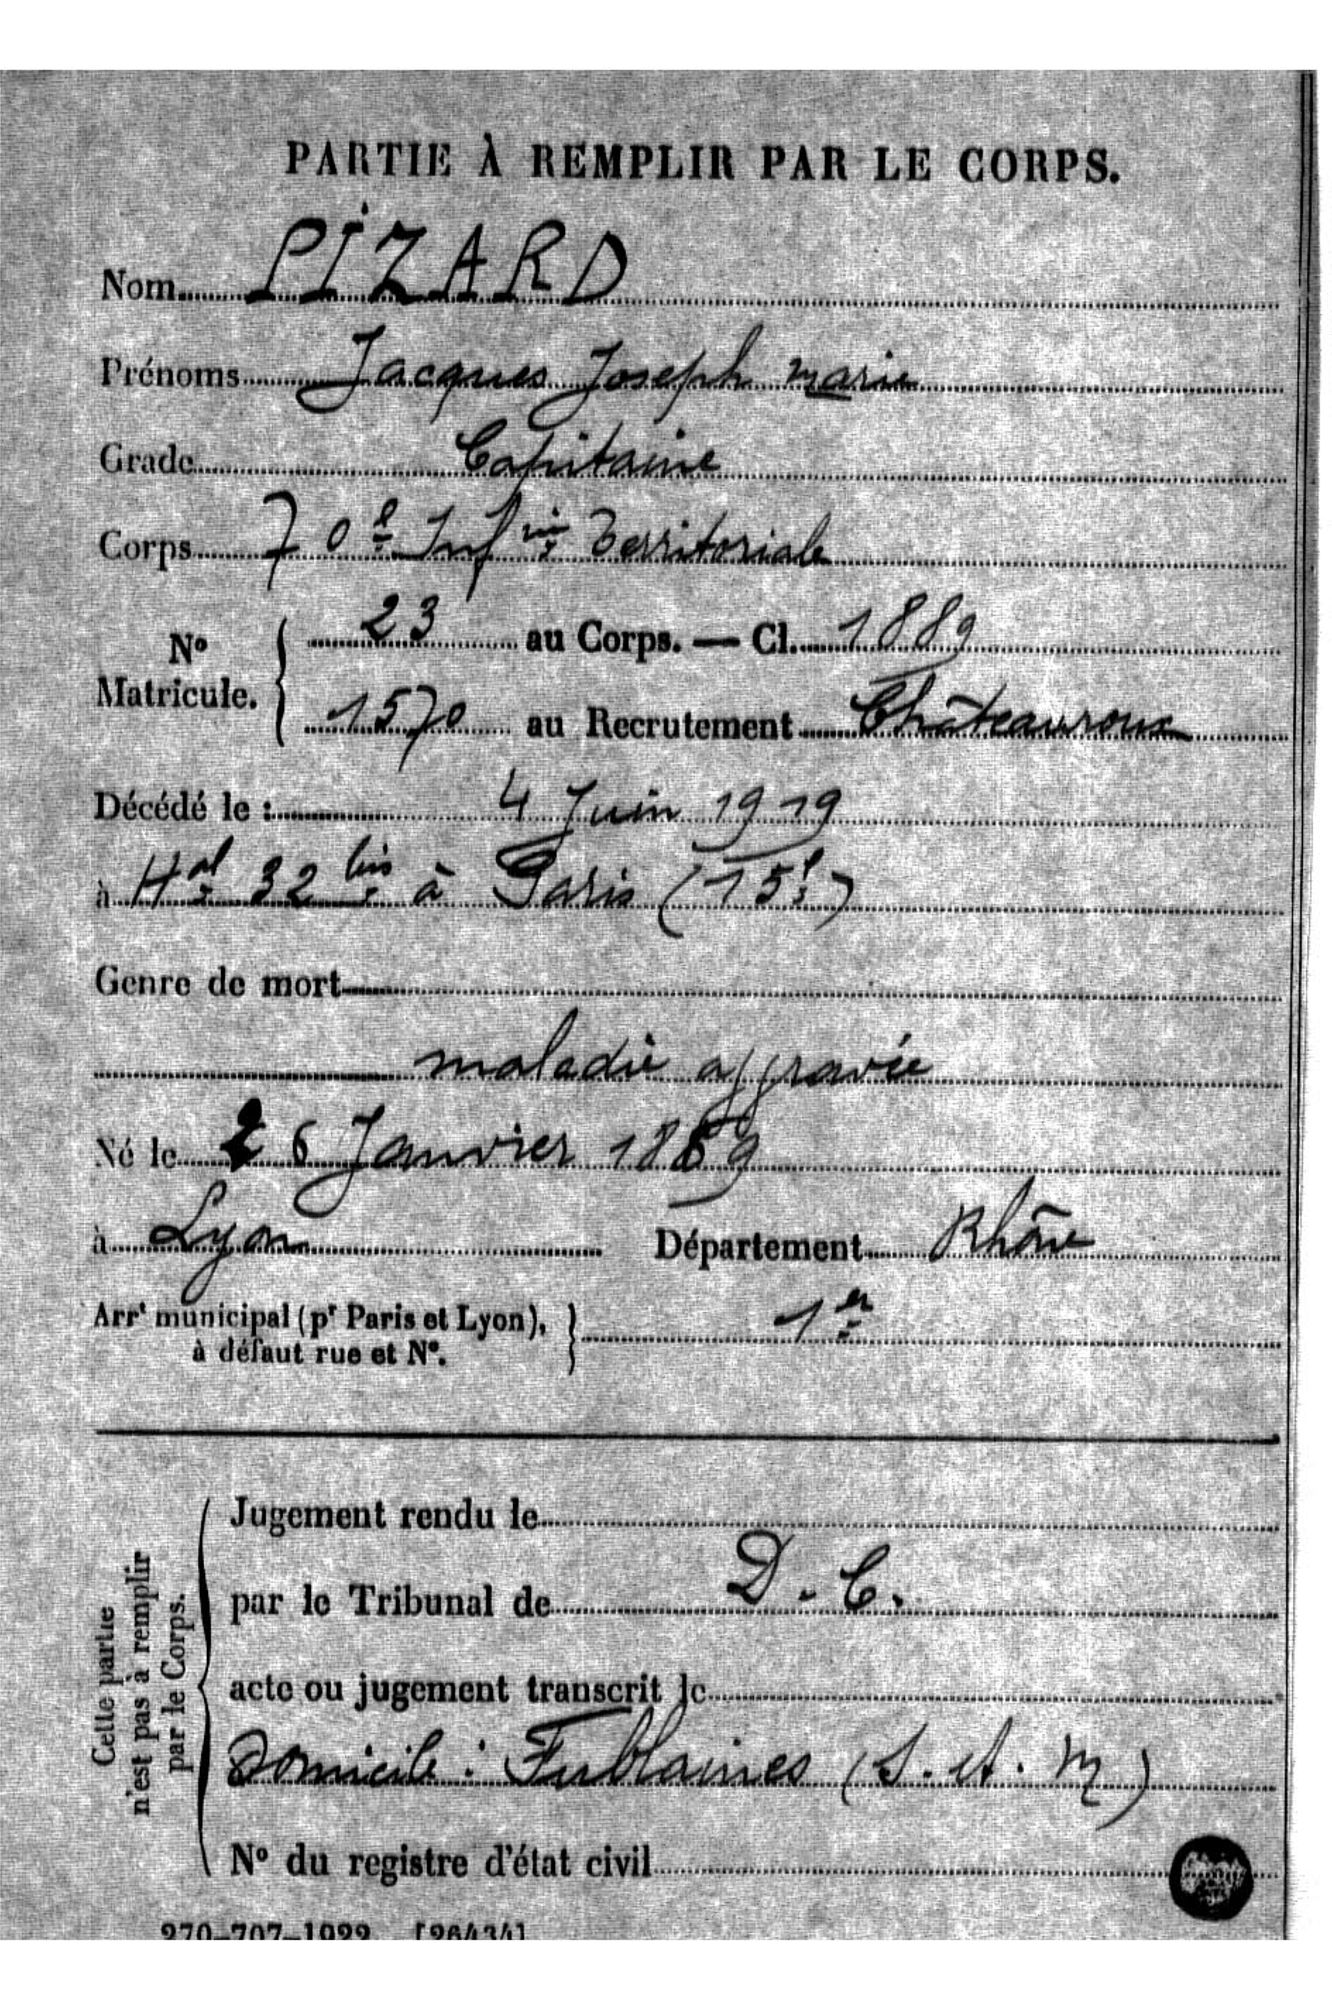 PARTIE À REMPLIR PAR LE CORPS.
Nom PIZARD
Prénoms Jacques Joseph Marie
Grade Capitaine
Corps 70e Infrie Territoriale
No Matricule. { 23 au Corps. — Cl. 1889
1570 au Recrutement Châteauroux
Décédé le : 4 Juin 1919
à Hal 32 bis à Paris (15e)
Genre de mort
maladie aggravée
Né le 26 Janvier 1869
à Lyon Département Rhône
Arrt municipal (pr Paris et Lyon), à défaut rue et No. } 1er
Cette partie n'est pas à remplir par le Corps.
Jugement rendu le
par le Tribunal de D. C.
acte ou jugement transcrit le
Domicile : Fublaines (S. et. M)
No du registre d'état civil
270-707-1922. [26434]